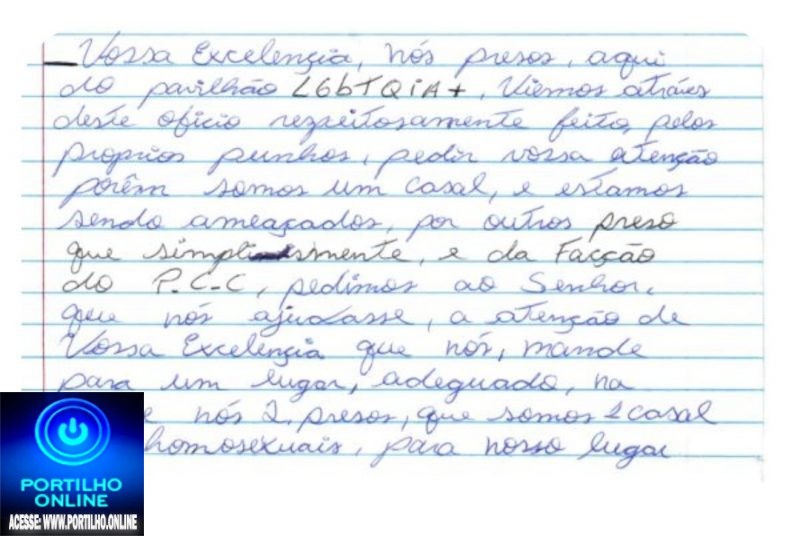 Vossa Excelençia, nós presos, aqui
do pavilhão LGbTQiA+, Viemos atráves
deste oficio respeitosamente feito, pelos
proprios punhos, pedir vossa atenção
porêm somos um casal, e estamos
sendo ameaçados, por outros preso
que simplismente, e da Facção
do P.C.C, pedimos ao Senhor.
que nós ajudasse, a atenção de
Vossa Excelençia que nós, mande
para um lugar, adequado, na
nós 2, presos, que somos 1 casal
homosexuais, para nosso lugar
PORTILHO
ONLINE
ACESSE: WWW.PORTILHO.ONLINE